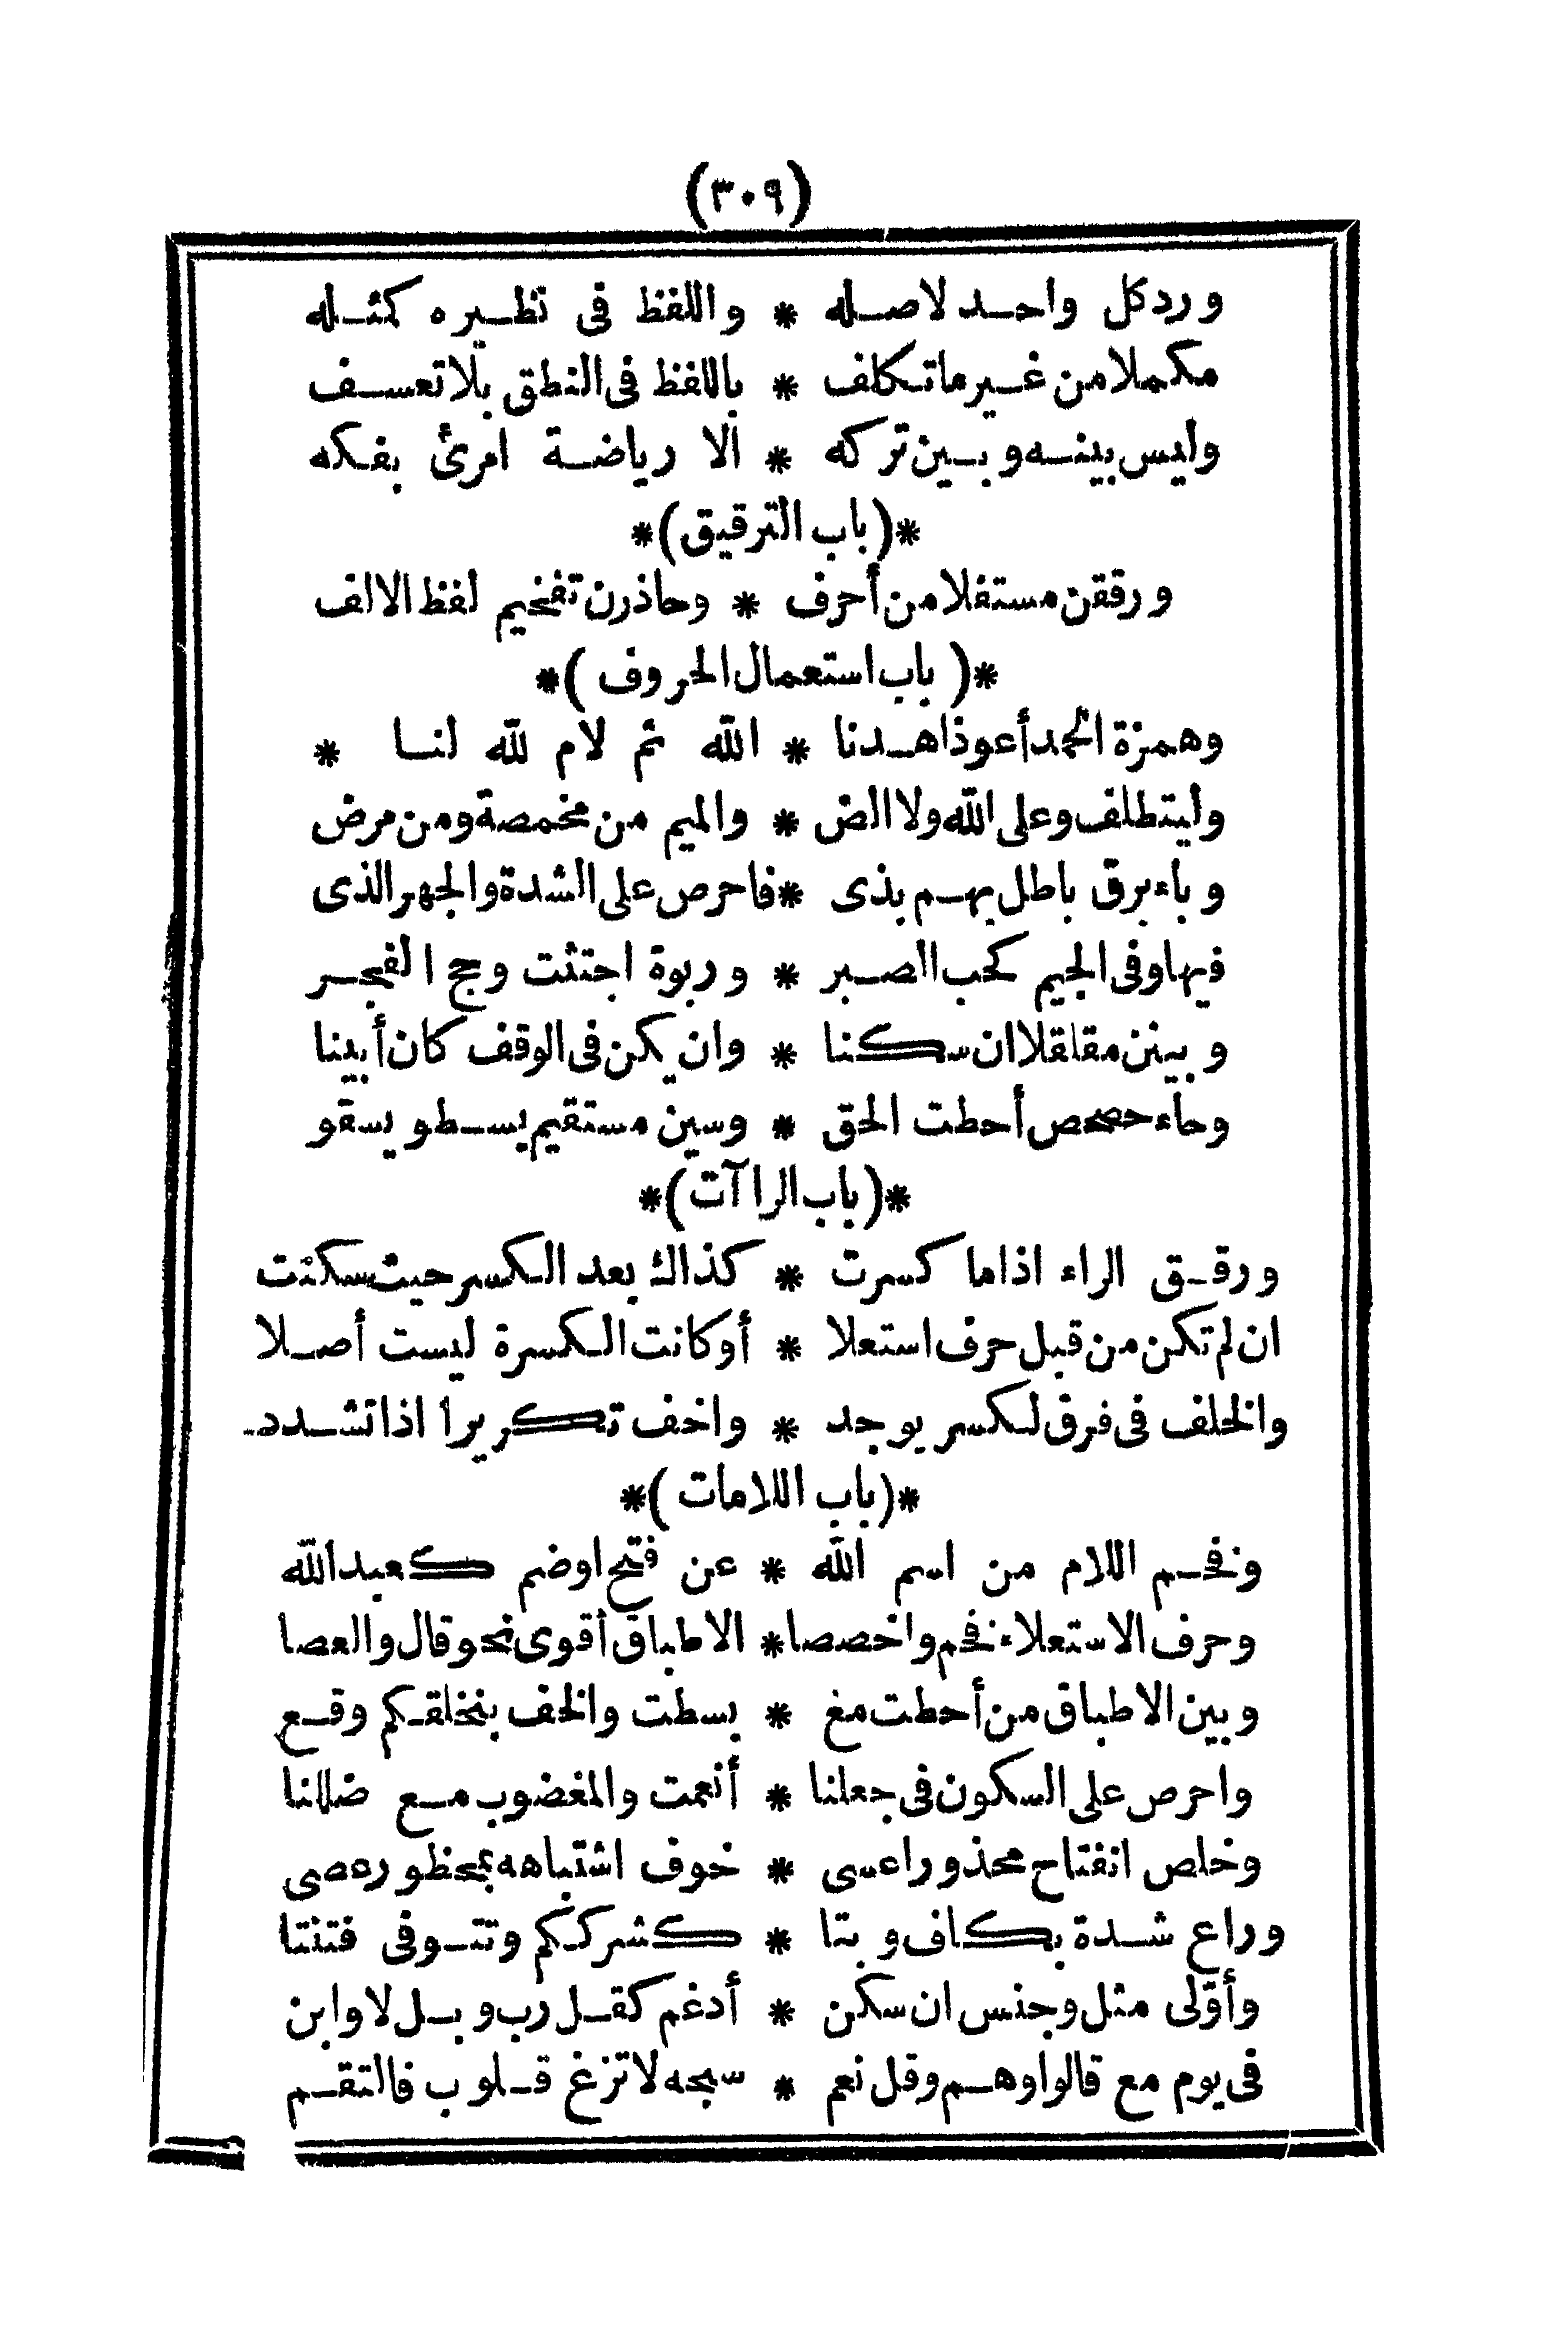 (٣٠٩)
ورد كل واحد لاصله * واللفظ فى نظيره كمثله
مكملا من غير ما تكلف * باللفظ فى النطق بلا تعسف
وليس بينه وبين تركه * الا رياضة امرئ بفكه
*(باب الترقيق)*
ورققن مستفلا من أحرف * وحاذرن تفخيم لفظ الالف
*( باب استعمال الحروف )*
وهمزة الحمد أعوذ اهدنا * الله ثم لام لله لنا *
وليتطلف وعلى الله ولا الض * والميم من مخمصة ومن مرض
وباء برق باطل بهم بذى * فاحرص على الشدة والجهر الذى
فيها وفى الجيم كحب الصبر * وربوة اجتثت وحج الفجر
وبينن مقلقلا ان سكنا * وان يكن فى الوقف كان أبينا
وحاء حصحص أحطت الحق * وسين مستقيم يسطو يسقو
*(باب الراآت)*
ورقق الراء اذا ما كسرت * كذاك بعد الكسر حيث سكنت
ان لم تكن من قبل حرف استعلا * أو كانت الكسرة ليست أصلا
والخلف فى فرق لكسر يوجد * واخف تكريرا اذا تشدد
*(باب اللامات)*
وفخم اللام من اسم الله * عن فتح او ضم كعبد الله
وحرف الاستعلاء فخم واخصصا * الاطباق أقوى نحو قال والعصا
وبين الاطباق من أحطت مع * بسطت والخف بنخلقكم وقع
واحرص على السكون فى جعلنا * أنعمت والمغضوب مع ضللنا
وخلص انفتاح محذورا عسى * خوف اشتباهه بمحظورعصى
وراع شدة بكاف وبتا * كشرككم وتتوفى فتنتا
وأولى مثل وجنس ان سكن * أدغم كقل رب وبل لا وابن
فى يوم مع قالوا وهم وقل نعم * سبحه لا تزغ قلوب فالتقم